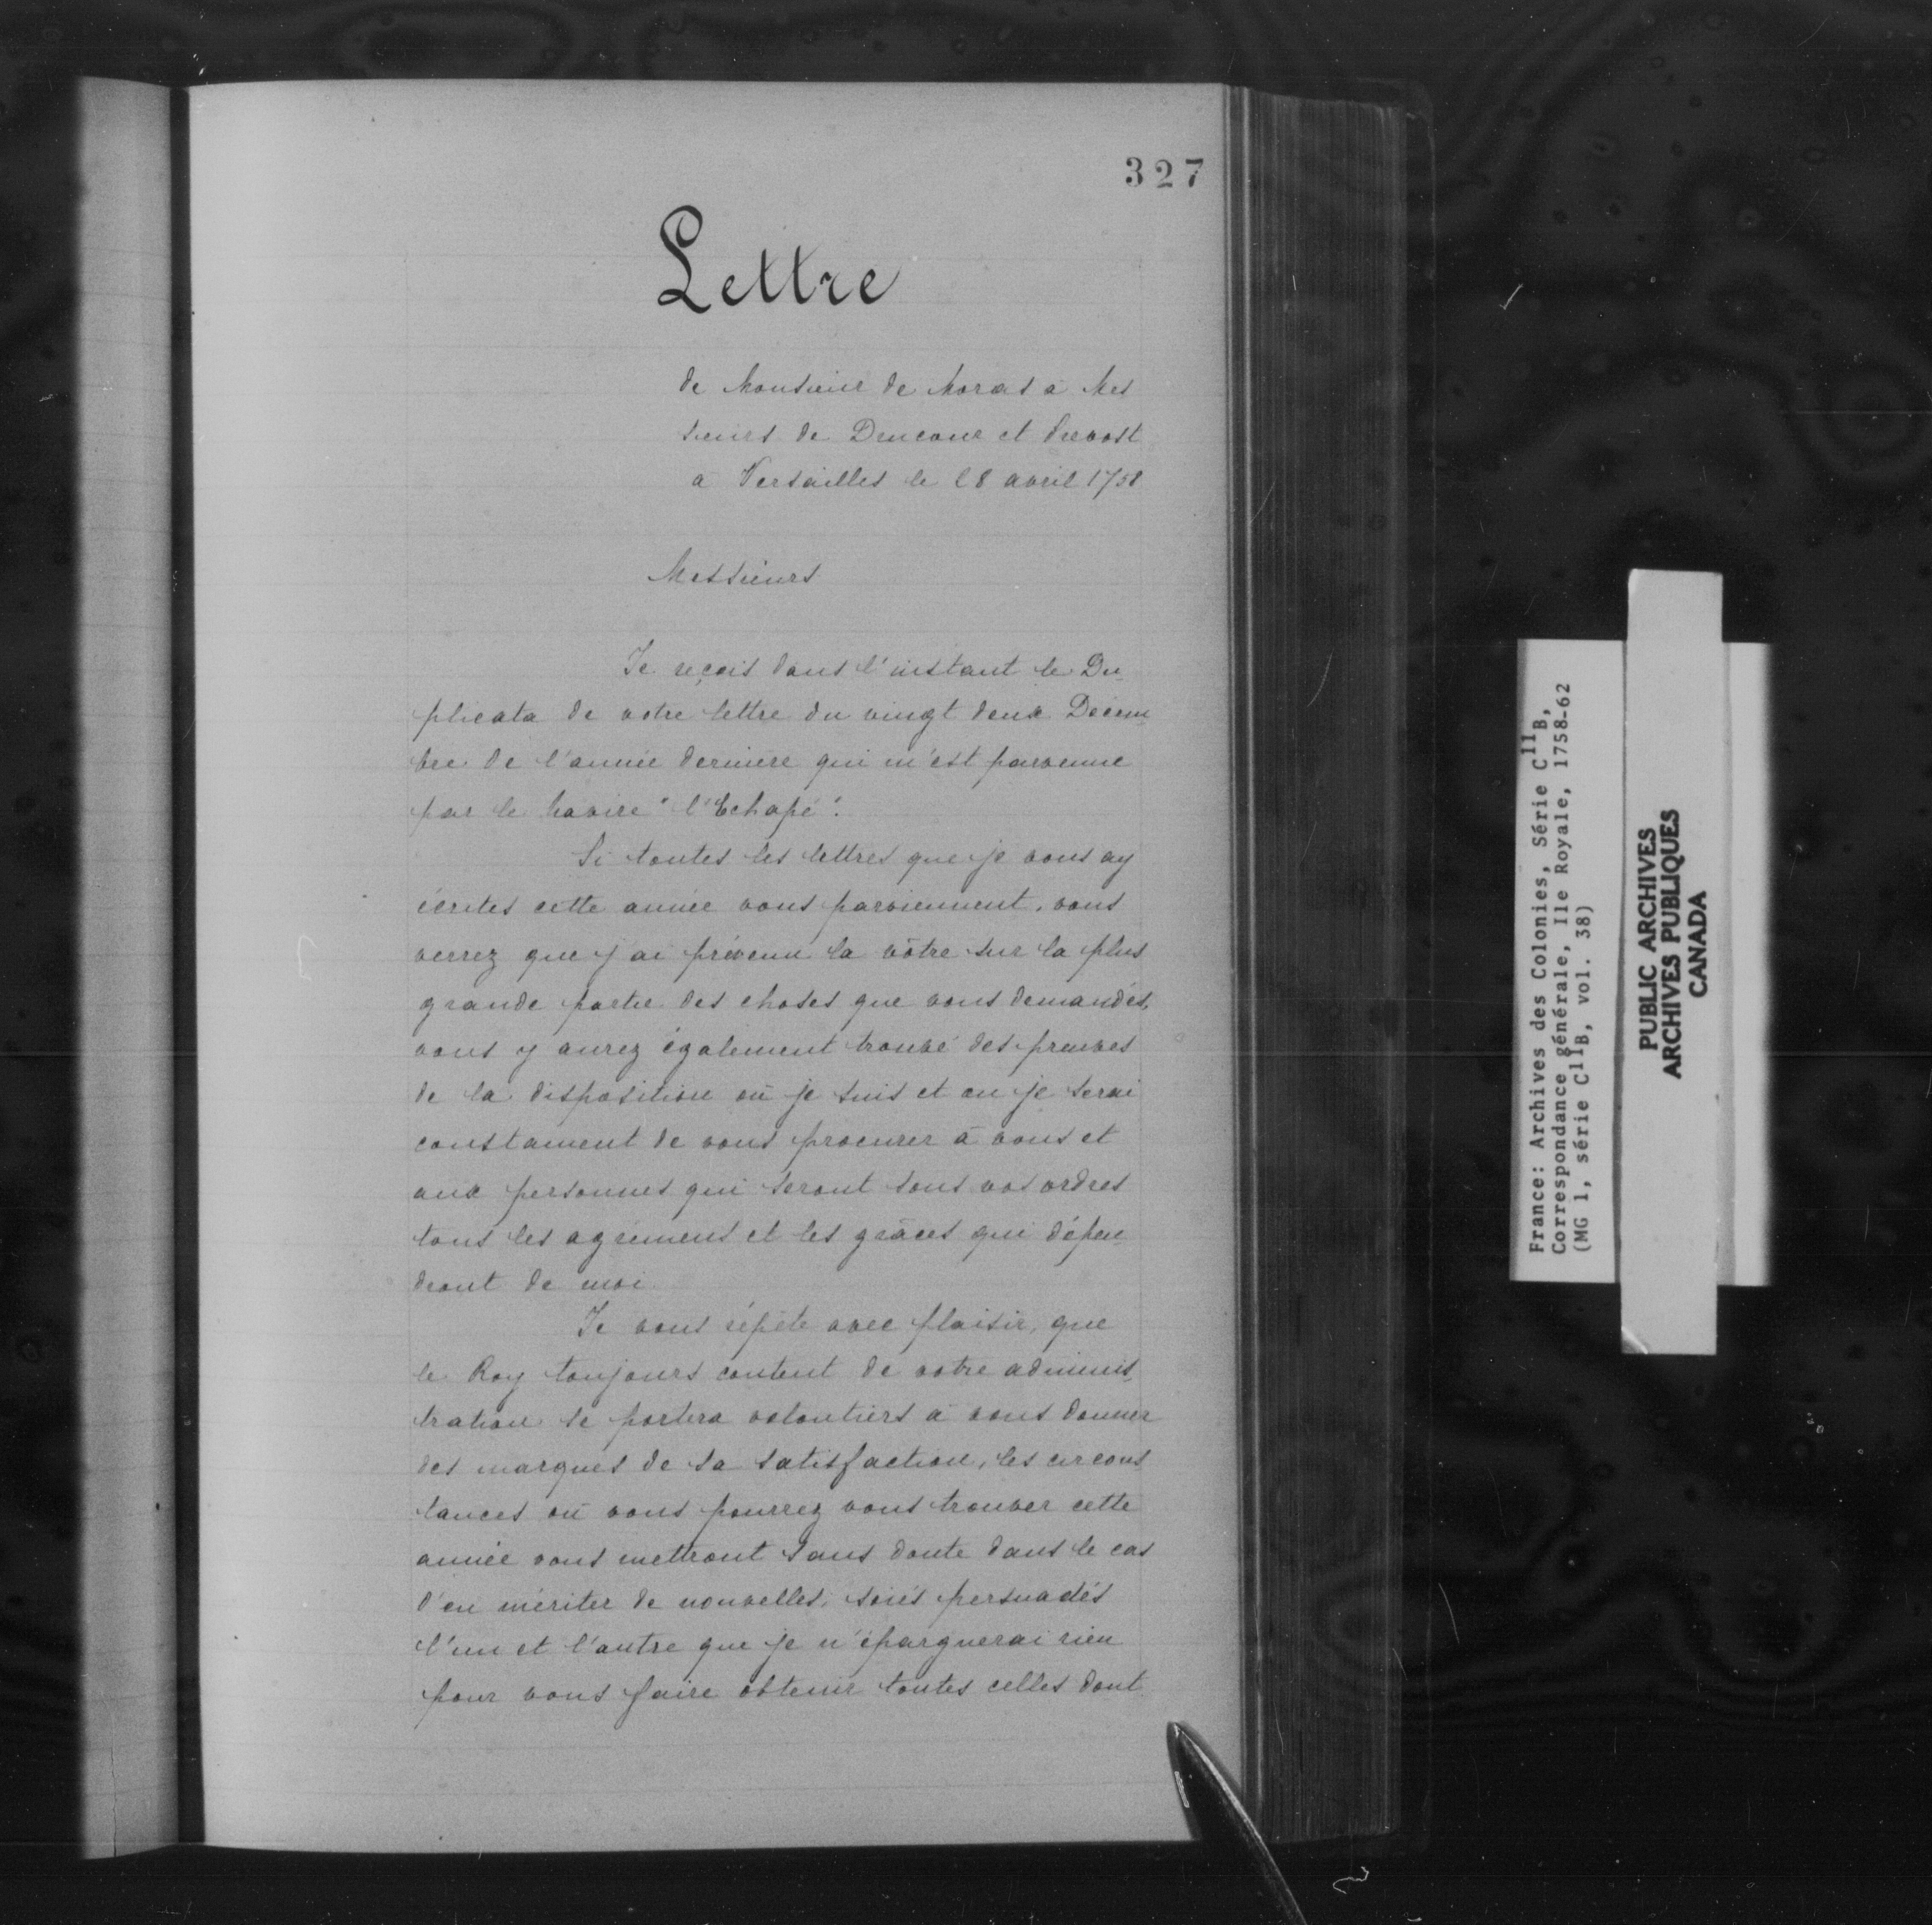 327
Lettre
de Monsieur de Moras à Mes
sieurs de Drucour et Prevost
à Versailles le 28 avril 1758
Messieurs
Je reçois dans l'instant le Du-
plicata de votre lettre du vingt deux Décem-
bre de l'année dernière qui m'est parvenue
par le Navire "l'Echapé".
Si toutes les lettres que je vous ay
écrites cette année vous parviennent, vous
verrez que j'ai prévenu la vôtre sur la plus
grande partie des choses que vous demandés,
vous y aurez également trouvé des preuves
de la disposition où je suis et ou je serai
constament de vous procurer à vous et
aux personnes qui seront sous vos ordres
tous les agrémens et les grâces qui dépen-
dront de moi
Je vous répète avec plaisir, que
le Roy toujours content de votre adminis-
tration se portera volontiers à vous donner
des marques de sa satisfaction, les circons
tances où vous pourrez vous trouver cette
année vous mettront sans doute dans le cas
d'en mériter de nouvelles, soiés persuadés
l'un et l'autre que je n'épargnerai rien
pour vous faire obtenir toutes celles dont
France: Archives des Colonies, Série C11B,
Correspondance générale, Ile Royale, 1758-62
(MG 1, série C11B, vol. 38)
PUBLIC ARCHIVES
ARCHIVES PUBLIQUES
CANADA